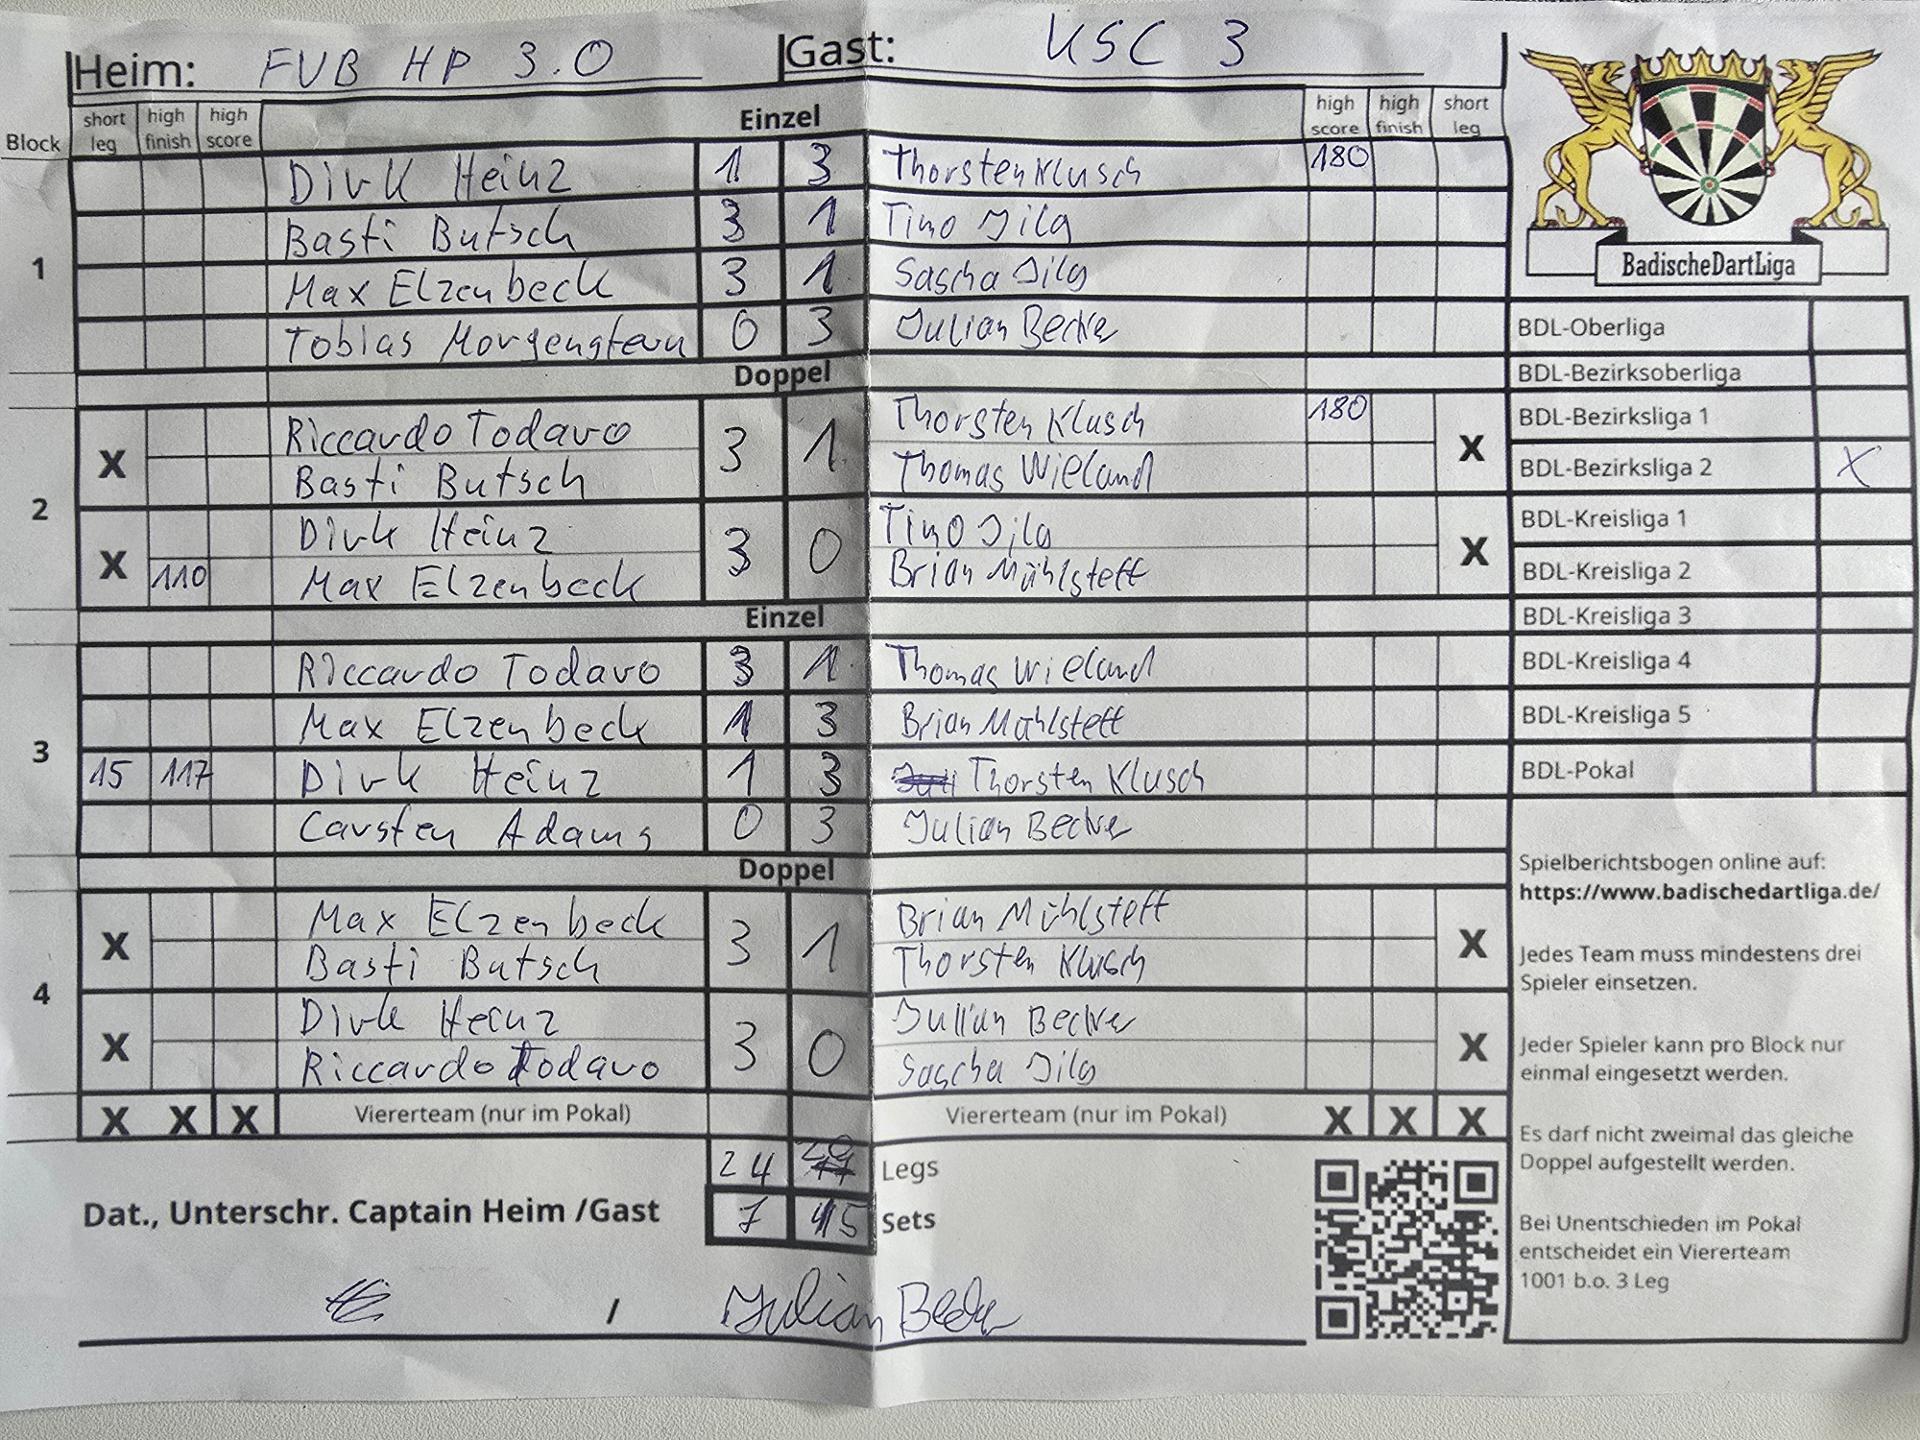 Heim: FVB HP 3.0 Gast: KSC 3
Block short leg high finish high score Einzel high score high finish short leg
1
Dirk Heinz 1 3 Thorsten Klusch 180
Basti Butsch 3 1 Tino Jilg
Max Elzenbeck 3 1 Sascha Jilg
Tobias Morgenstern 0 3 Julian Becker
Doppel
2
X Riccardo Todaro 3 1 Thorsten Klusch 180 X
Basti Butsch Thomas Wieland
X Dirk Heinz 3 0 Tino Jilg X
110 Max Elzenbeck Brian Mühlsteff
Einzel
3
Riccardo Todaro 3 1 Thomas Wieland
Max Elzenbeck 1 3 Brian Mühlsteff
15 117 Dirk Heinz 1 3 Thorsten Klusch
Carsten Adams 0 3 Julian Becker
Doppel
4
X Max Elzenbeck 3 1 Brian Mühlsteff X
Basti Butsch Thorsten Klusch
X Dirk Heinz 3 0 Julian Becker X
Riccardo Todaro Sascha Jilg
X X X Viererteam (nur im Pokal) Viererteam (nur im Pokal) X X X
24 20 Legs
Dat., Unterschr. Captain Heim /Gast 7 5 Sets
/ Julian Becker
BadischeDartLiga
BDL-Oberliga
BDL-Bezirksoberliga
BDL-Bezirksliga 1
BDL-Bezirksliga 2 X
BDL-Kreisliga 1
BDL-Kreisliga 2
BDL-Kreisliga 3
BDL-Kreisliga 4
BDL-Kreisliga 5
BDL-Pokal
Spielberichtsbogen online auf:
https://www.badischedartliga.de/
Jedes Team muss mindestens drei
Spieler einsetzen.
Jeder Spieler kann pro Block nur
einmal eingesetzt werden.
Es darf nicht zweimal das gleiche
Doppel aufgestellt werden.
Bei Unentschieden im Pokal
entscheidet ein Viererteam
1001 b.o. 3 Leg